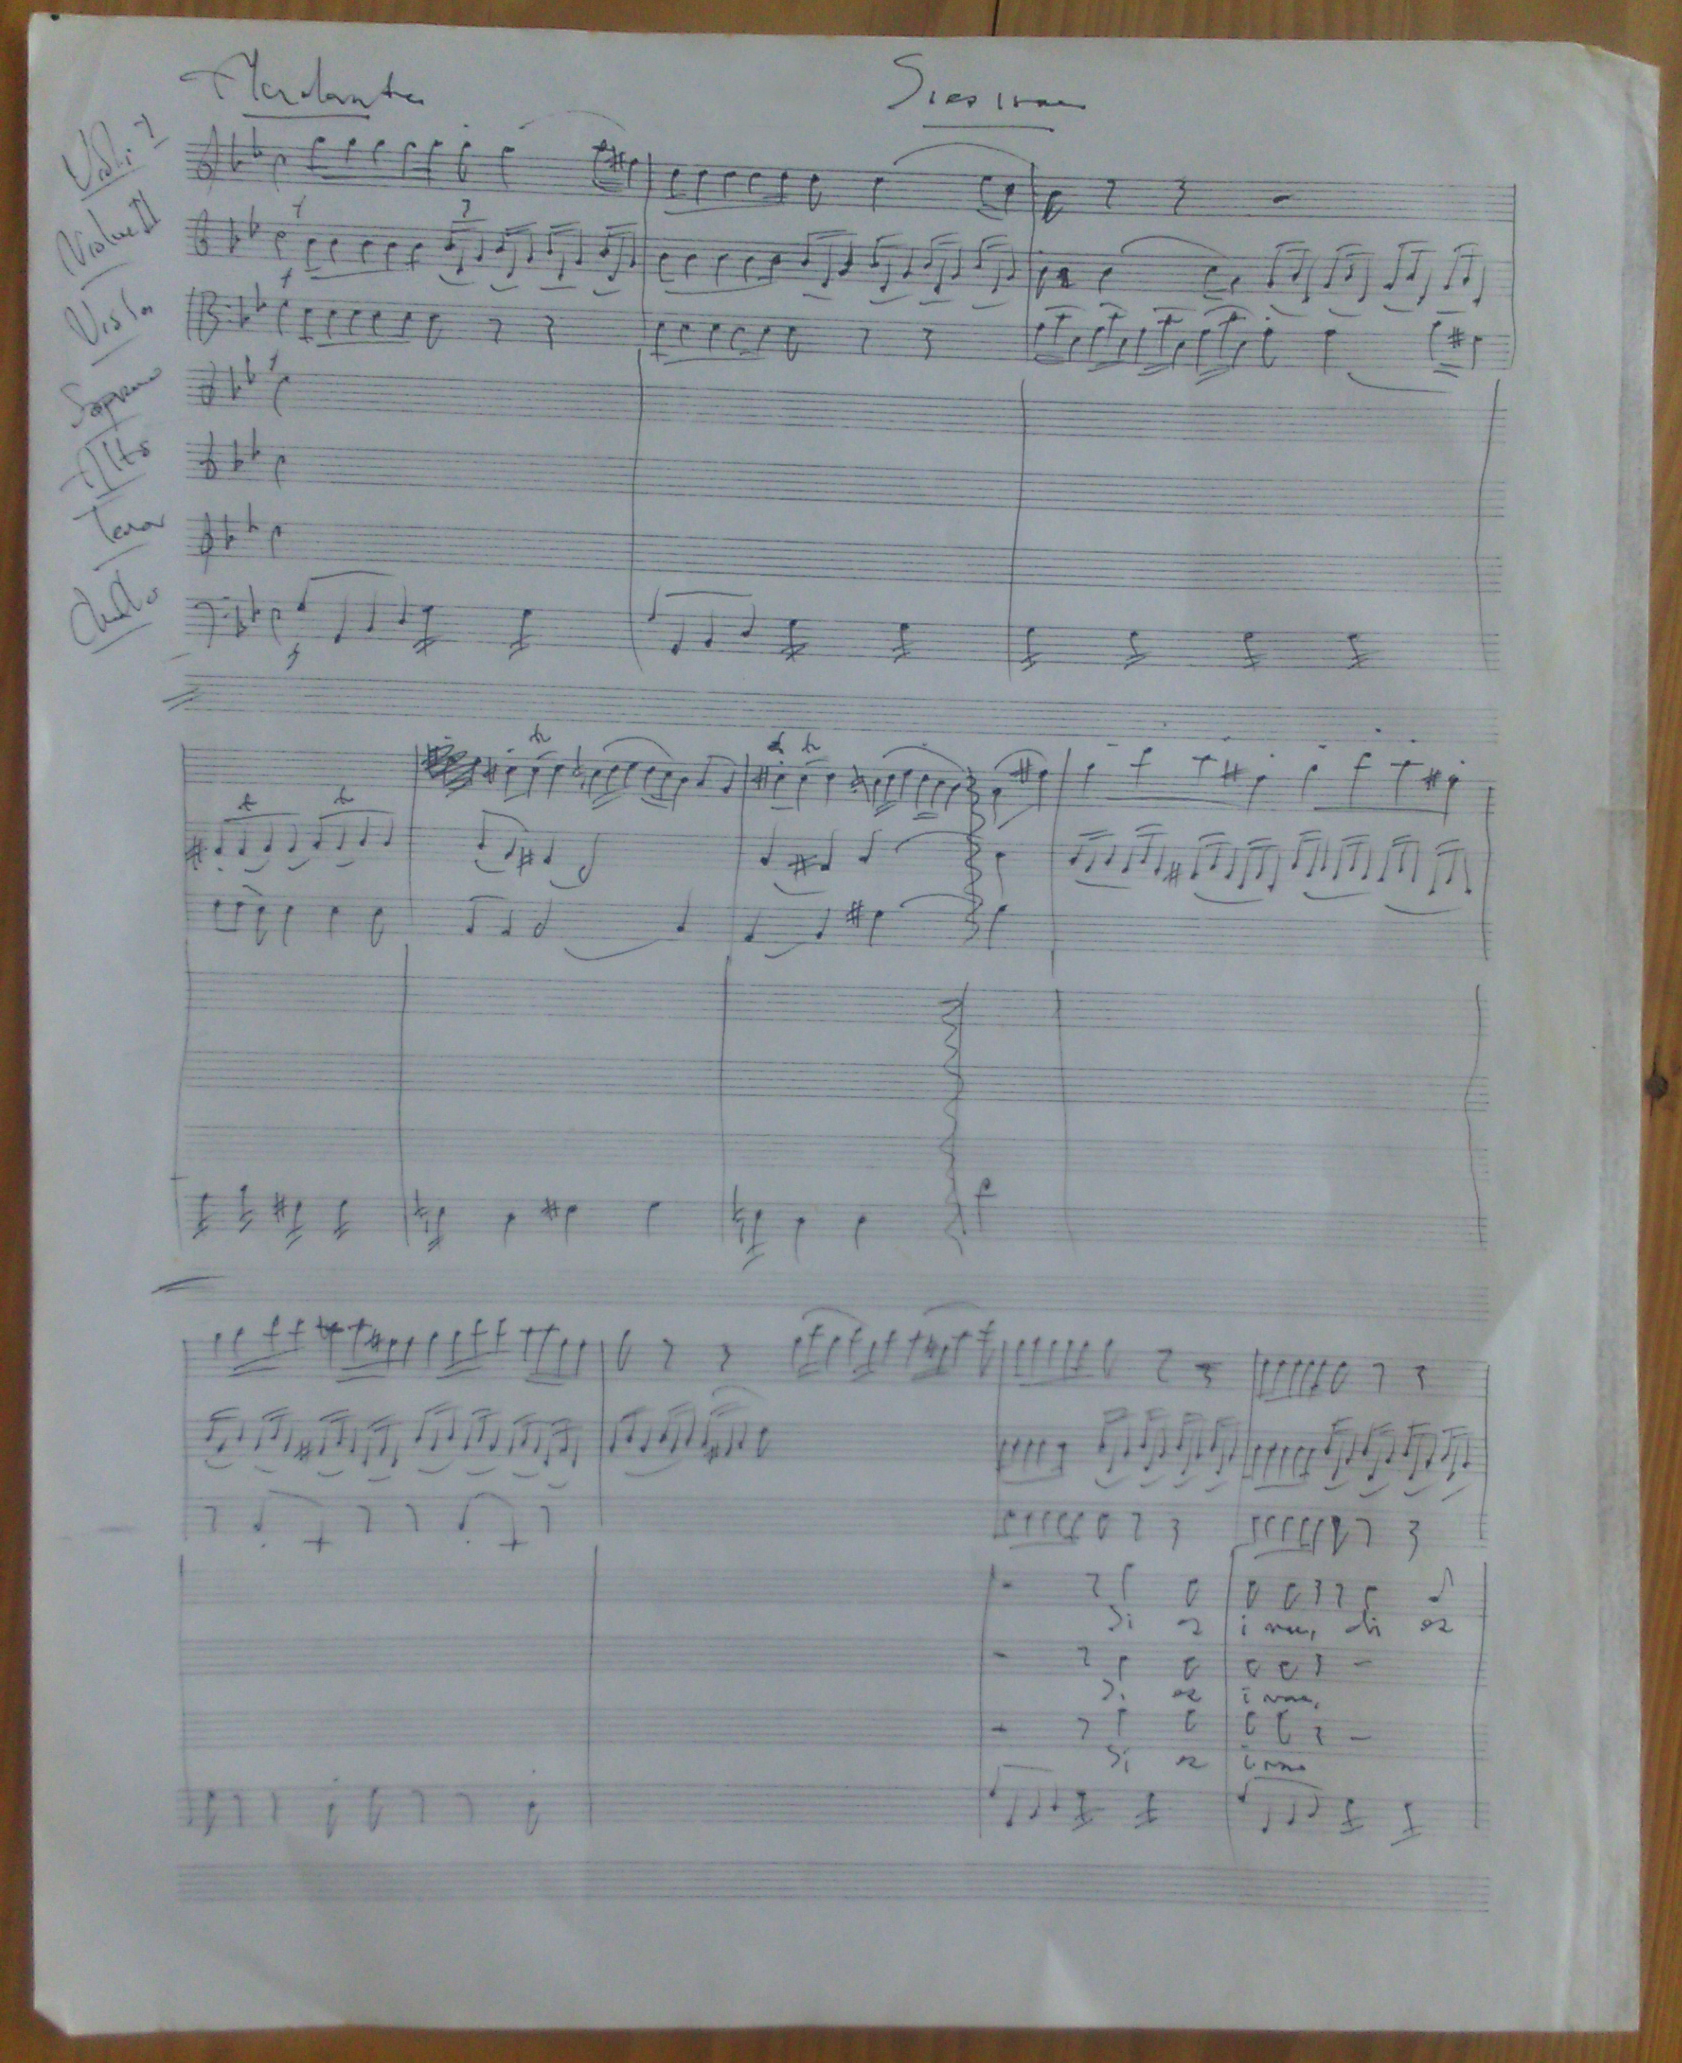 Andante
Dies irae
Viol. I
Violine II
Viola
Soprano
Alto
Tenor
Cello
f
3
f
f
f
f
tr tr
tr
tr
f
Di es i rae, di es
Di es i rae,
Di es i rae